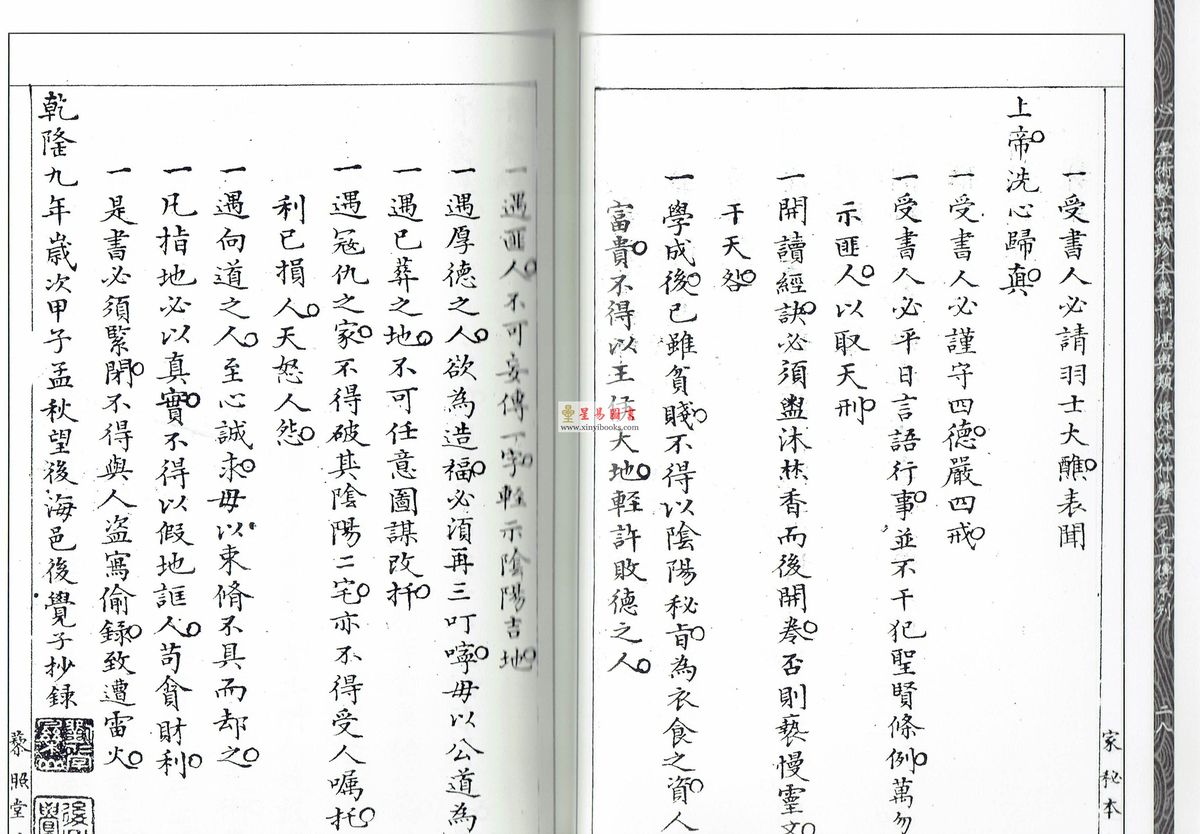 心一堂術數古籍珍本叢刊 堪輿類 蔣徒張仲馨三元真傳系列 二八
家秘本
一受書人必請羽士大醮表聞
上帝洗心歸真
一受書人必謹守四德嚴四戒
一受書人必平日言語行事並不干犯聖賢條例萬勿
示匪人以取天刑
一開讀經訣必須盥沐焚香而後開卷否則褻慢靈文
干天咎
一學成後已雖貧賤不得以陰陽秘旨為衣食之資人
富貴不得以王侯大地輕許敗德之人
一遇匪人不可妄傳一字輕示陰陽吉地
一遇厚德之人欲為造福必須再三叮嚀毋以公道為
一遇已葬之地不可任意圖謀改扦
一遇冦仇之家不得破其陰陽二宅亦不得受人囑托
利已損人天怒人怨
一遇向道之人至心誠求毋以束脩不具而却之
一凡指地必以真實不得以假地誆人苟貪財利
一是書必須緊閉不得與人盜寫偷錄致遭雷火
乾隆九年嵗次甲子孟秋望後海邑後覺子抄録
藜照堂
星易圖書
www.xinyibooks.com